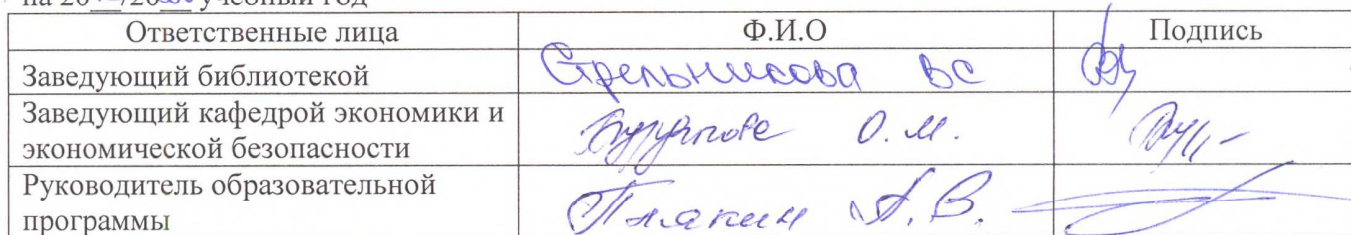 учебный год
Ответственные лица Ф.И.О Подпись
Заведующий библиотекой Стрельникова ВС
Заведующий кафедрой экономики и
экономической безопасности О.М.
Руководитель образовательной
программы Плякин А.В.